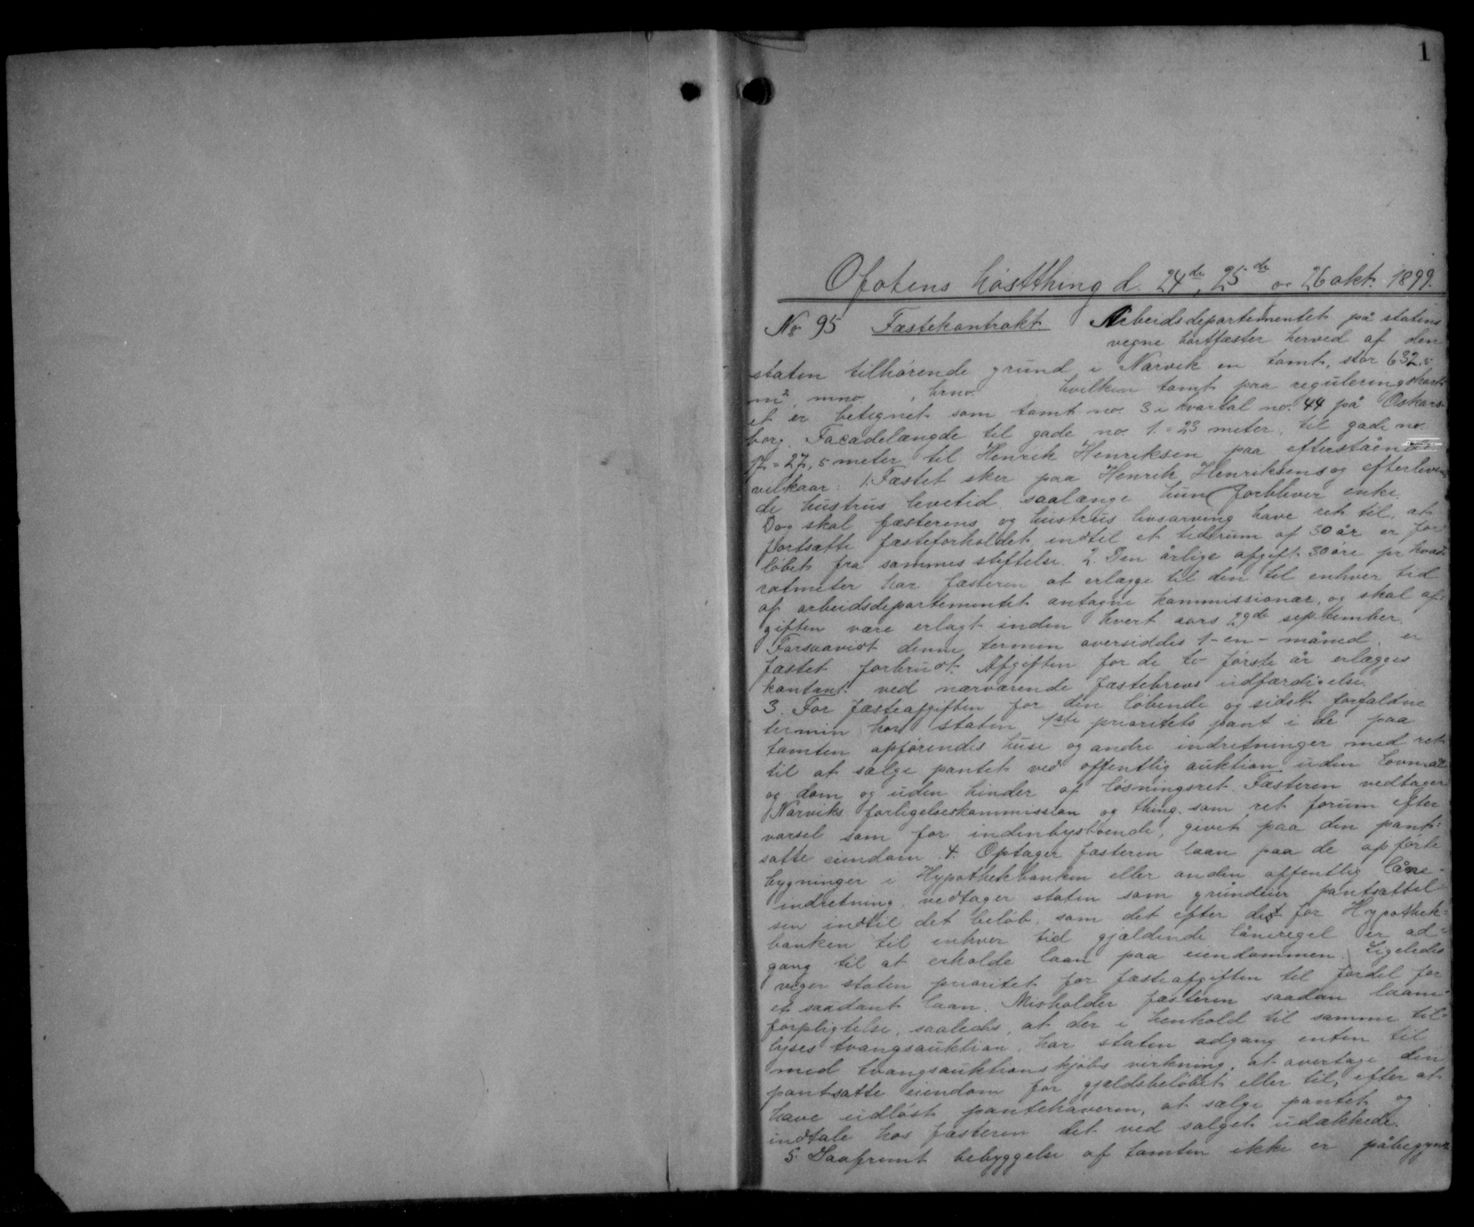 1
Ofotens høstthing d. 24de, 25de og 26 okt. 1899.
No 95 Fæstekontrakt Arbeidsdepartementet på statens
vegne bortfæster herved af den
staten tilhørende grund i Narvik en tomt, stor 632,5
m², mno. , brno. hvilken tomt paa reguleringskart-
et er betegnet som tomt no. 3 i kvartal no. 44 på Oskars-
borg. Facadelængde til gade no. 1 = 23 meter, til gade no.
12 = 27,5 meter til Henrik Henriksen paa efterstående
vilkaar: 1. Fæstet sker paa Henrik Henriksens og efterleven-
de hustrus levetid saalænge hun forbliver enke.
Dog skal fæsterens og hustrus livsarving have ret til, at
fortsætte fæsteforholdet indtil et tidsrum af 50 år er for-
løbet fra sammes stiftelse. 2. Den årlige afgift 30 øre pr kvad-
ratmeter har fæsteren at erlægge til den til enhver tid
af arbeidsdepartementet antagne kommissionær, og skal af-
giften være erlagt inden hvert aars 29de september.
Forsaavidt denne termin oversiddes 1 - en - måned, er
fæstet forbrudt. Afgiften for de to første år erlægges
kontant ved nærværende fæstebrevs udfærdigelse.
3. For fæsteafgiften for den løbende og sidst forfaldne
termin har staten 1ste prioritets pant i de paa
tomten opførendes huse og andre indretninger med ret
til at sælge pantet ved offentlig auktion uden lovmaal
og dom og uden hinder af løsningsret. Fæsteren vedtager
Narviks forligelseskommission og thing som ret forum efter
varsel som for indenbysboende, givet paa den pant-
satte eiendom. 4. Optager fæsteren laan paa de opførte
bygninger i Hypothekbanken eller anden offentlig låne-
indretning, vedtager staten som grundeier pantsættel-
sen indtil det beløb, som det efter det for Hypothek-
banken til enhver tid gjældende låneregel er ad-
gang til at erholde laan paa eiendommen. Ligeledes
viger staten prioritet for fæsteafgiften til fordel for
et saadant laan. Misholder fæsteren saadan laane-
forpligtelse, saaledes, at der i henhold til samme til-
lyses tvangsauktion, har staten adgang enten til
med tvangsauktionskjøbs virkning, at overtage den
pantsatte eiendom for gjældsbeløbet eller til, efter at
have udløst panthaveren, at sælge pantet og
indtale hos fæsteren det ved salget udækkede.
5. Saafremt bebyggelse af tomten ikke er påbegynt